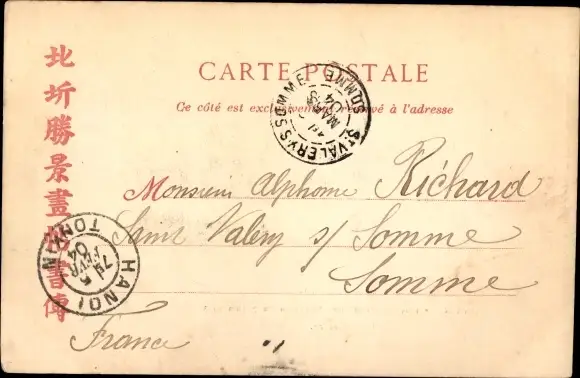 CARTE POSTALE
Ce côté est exclusivement réservé à l'adresse
北圻勝景畫
書傳
ST VALERY S SOMME
SOMME
MARS
04
Monsieur Alphonse Richard
Saint Valéry s/ Somme
Somme
France
HANOI
TONKIN
7E
5
FEVR
04